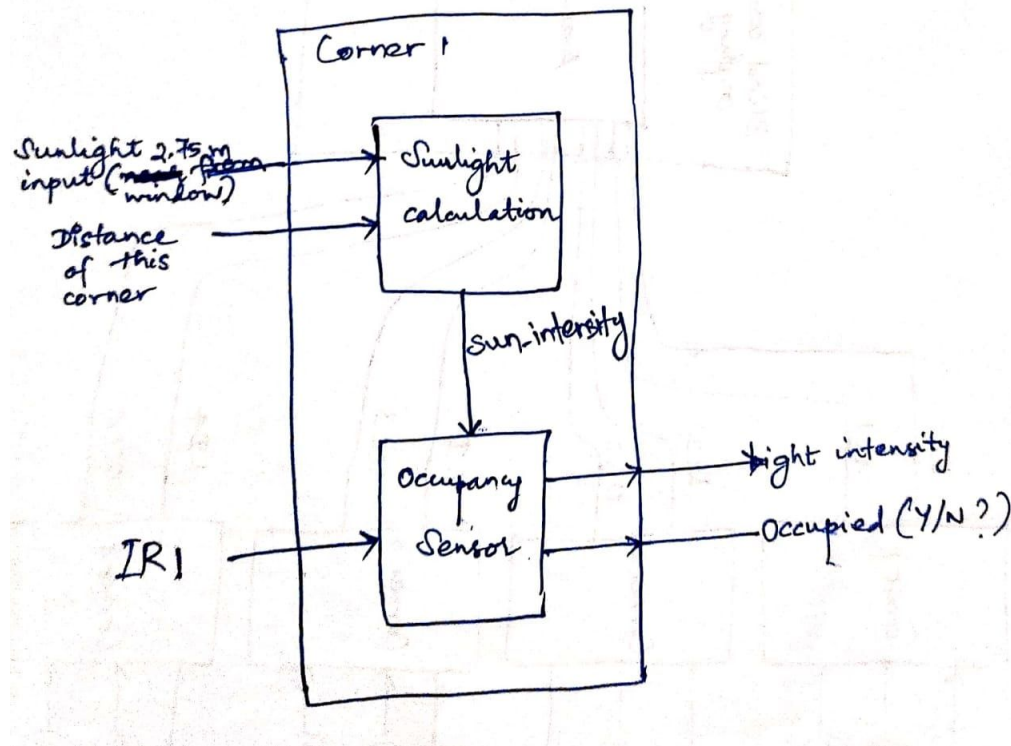 Corner 1
Sunlight 2.75 m
input (from
window)
Distance
of this
corner
Sunlight
calculation
sun_intensity
Occupancy
Sensor
IR1
light intensity
Occupied (Y/N?)